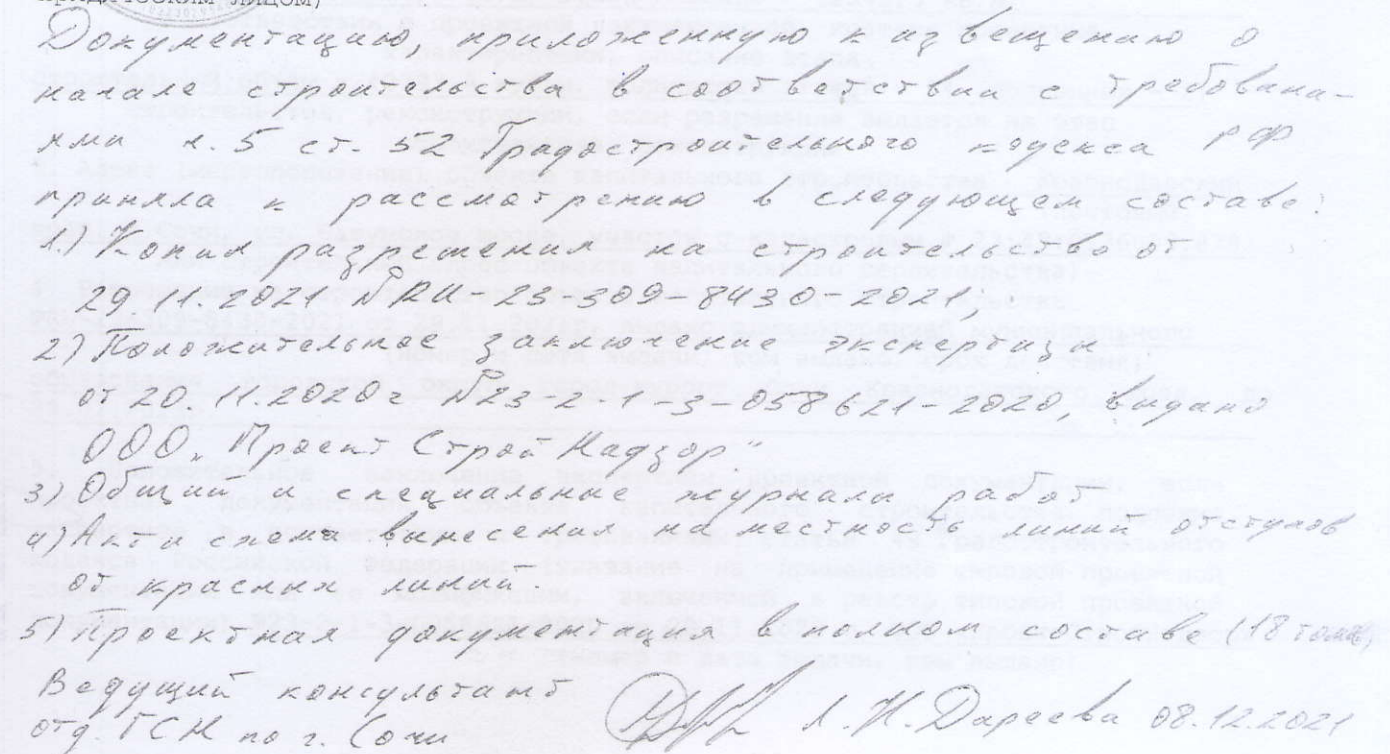 юридическим лицом)
Документацию, приложенную к извещению о
начале строительства в соответствии с требовани-
ями ч. 5 ст. 52 Градостроительного кодекса РФ
приняла к рассмотрению в следующем составе:
1) Копия разрешения на строительство от
29.11.2021 №RU-23-309-8430-2021;
2) Положительное заключение экспертизы
от 20.11.2020г №23-2-1-3-058621-2020, выдано
ООО „Проект Строй Надзор."
3) Общий и специальные журналы работ
4) Акт и схема вынесения на местность линий отступов
от красных линий.
5) Проектная документация в полном составе (18 томов)
Ведущий консультант
отд. ГСН по г. Сочи Дареева 08.12.2021